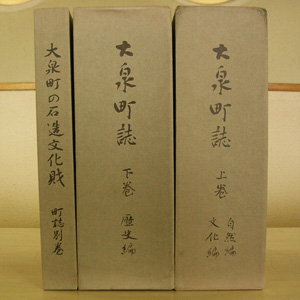 大泉町誌
上巻
自然編
文化編
大泉町誌
下巻
歴史編
大泉町の石造文化財
町誌別巻